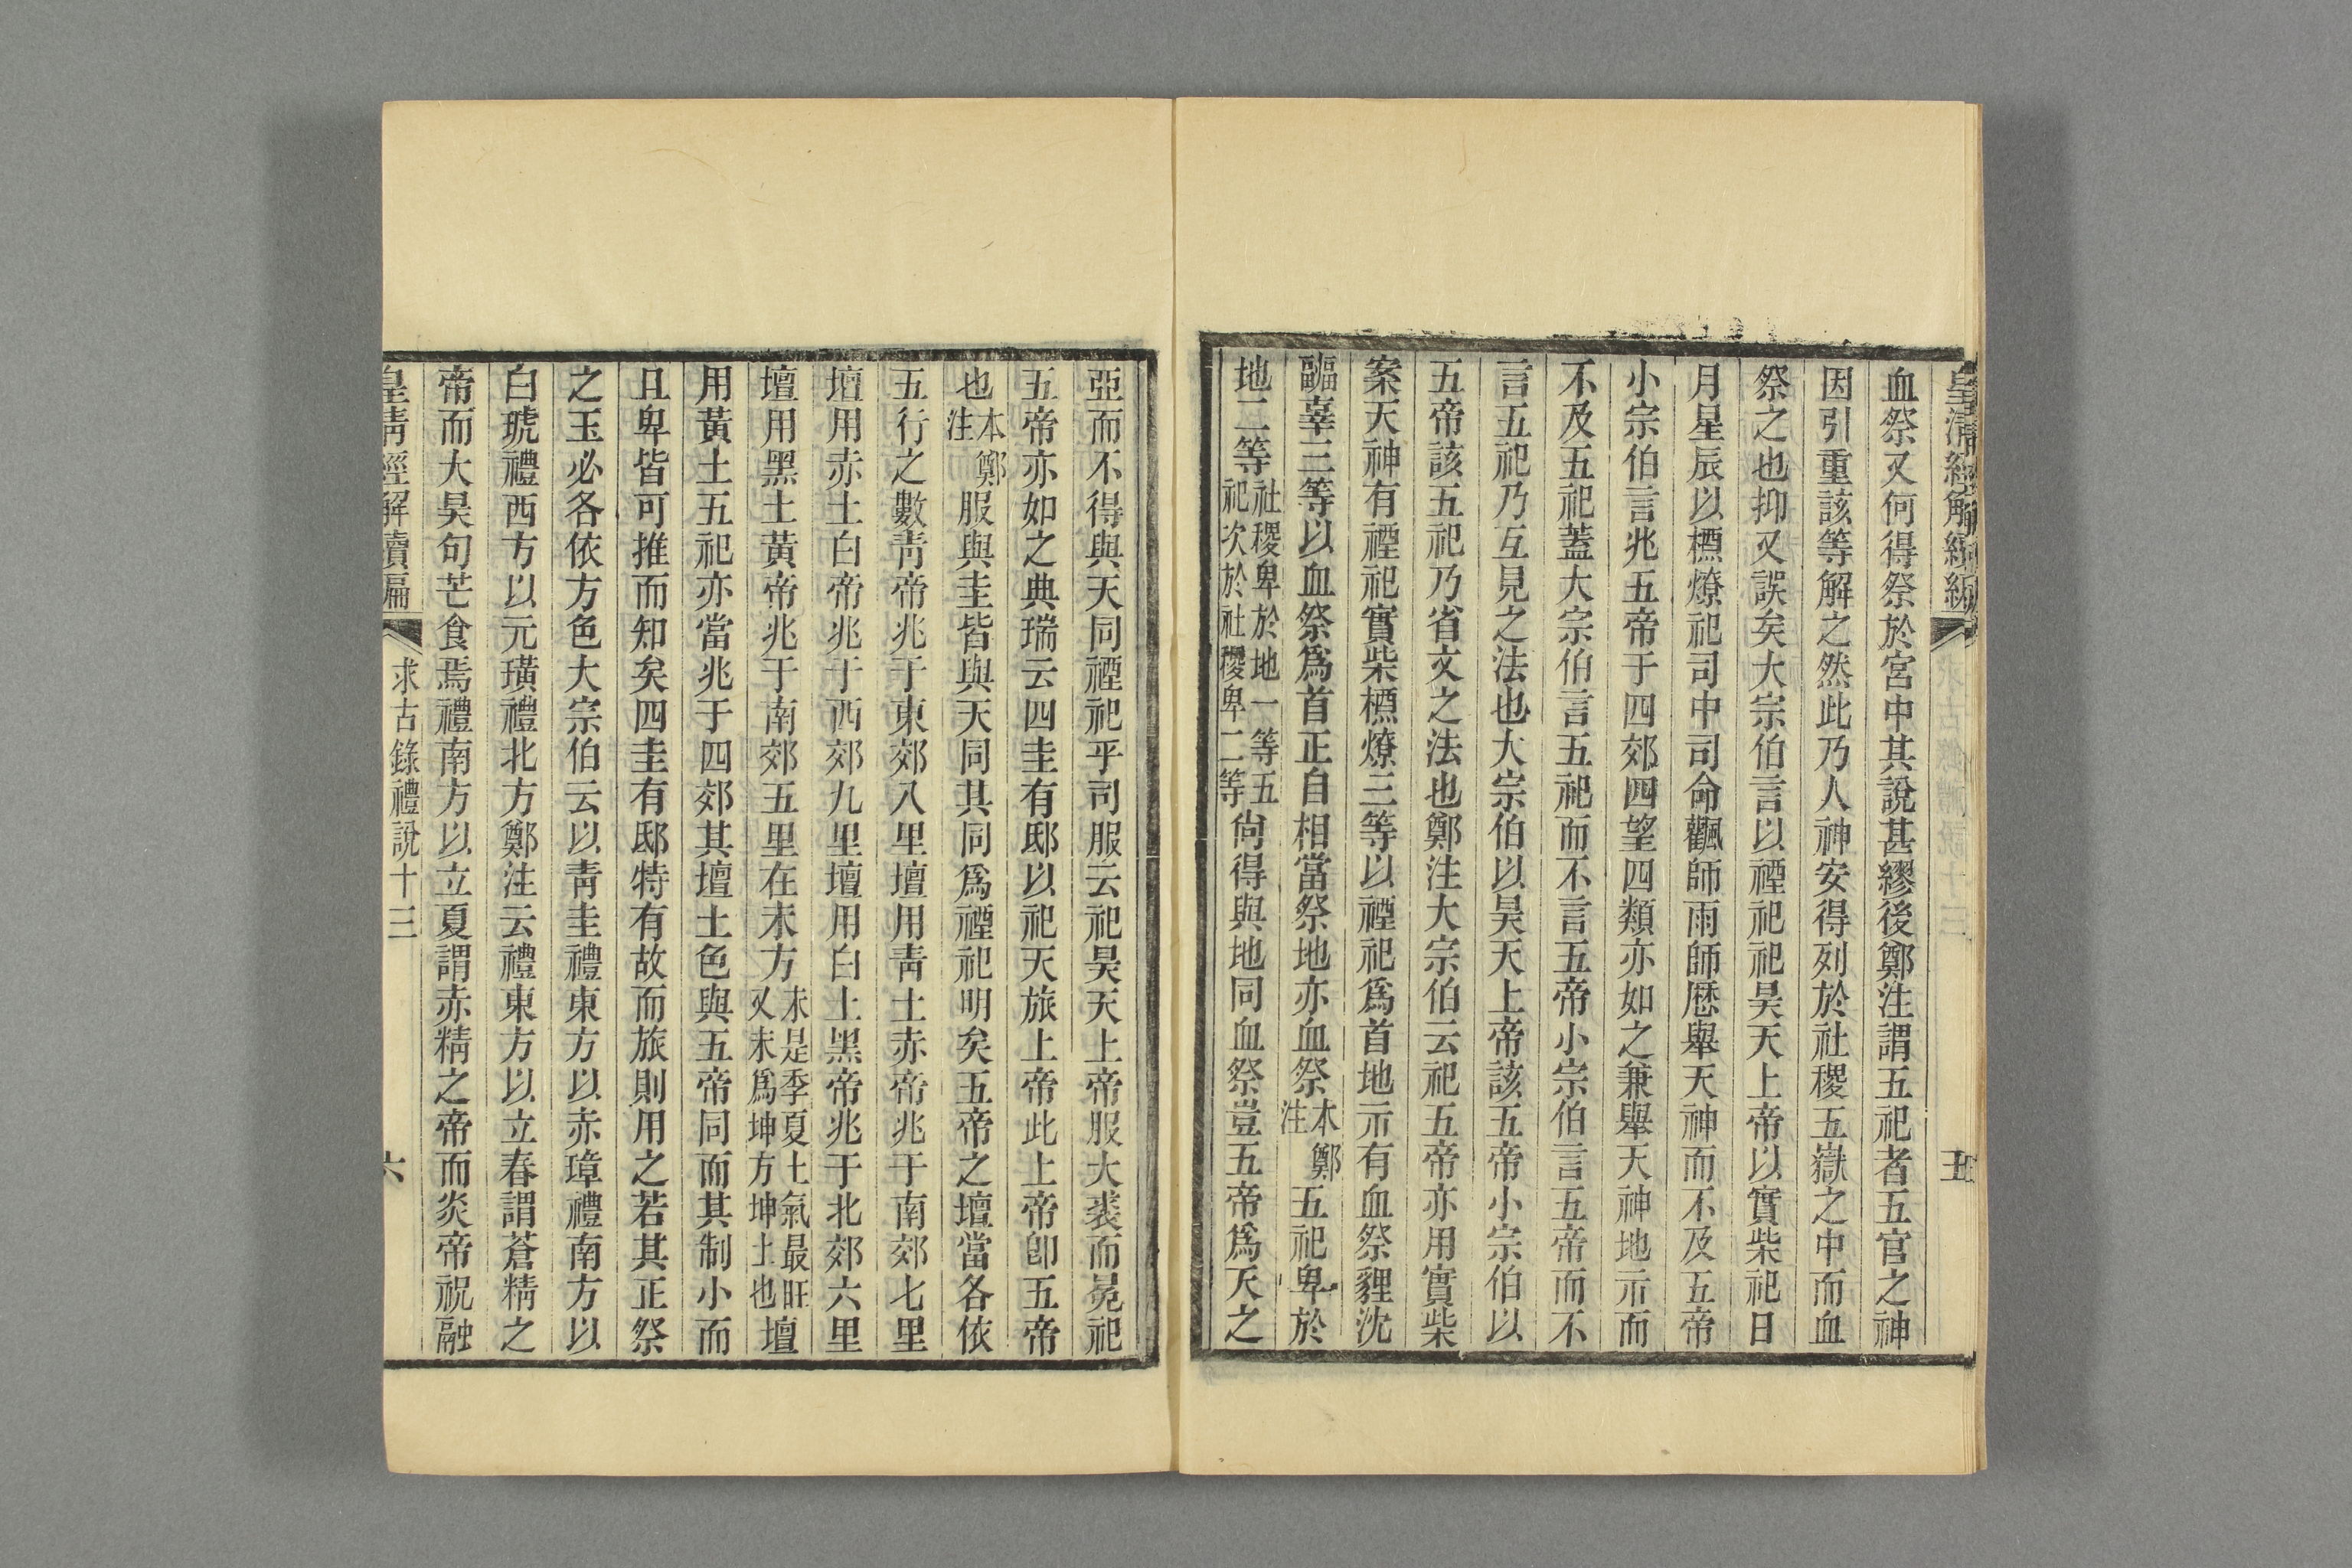 皇清經解續編
五
血祭又何得祭於宮中其說甚繆後鄭注謂五祀者五官之神
因引重該等解之然此乃人神安得列於社稷五嶽之中而血
祭之也抑又誤矣大宗伯言以禋祀祀昊天上帝以實柴祀日
月星辰以槱燎祀司中司命飌師雨師歷舉天神而不及五帝
小宗伯言兆五帝于四郊四望四類亦如之兼舉天神地示而
不及五祀蓋大宗伯言五祀而不言五帝小宗伯言五帝而不
言五祀乃互見之法也大宗伯以昊天上帝該五帝小宗伯以
五帝該五祀乃省文之法也鄭注大宗伯云祀五帝亦用實柴
案天神有禋祀實柴槱燎三等以禋祀為首地示有血祭貍沈
疈辜三等以血祭為首正自相當祭地亦血祭本鄭注五祀卑於
地二等社稷卑於地一等五祀次於社稷卑二等尙得與地同血祭豈五帝為天之
亞而不得與天同禋祀乎司服云祀昊天上帝服大裘而冕祀
五帝亦如之典瑞云四圭有邸以祀天旅上帝此上帝卽五帝
也本鄭注服與圭皆與天同其同為禋祀明矣五帝之壇當各依
五行之數靑帝兆于東郊八里壇用靑土赤帝兆于南郊七里
壇用赤土白帝兆于西郊九里壇用白土黑帝兆于北郊六里
壇用黑土黃帝兆于南郊五里在未方未是季夏土氣最旺又未為坤方坤土也壇
用黃土五祀亦當兆于四郊其壇土色與五帝同而其制小而
且卑皆可推而知矣四圭有邸特有故而旅則用之若其正祭
之玉必各依方色大宗伯云以靑圭禮東方以赤璋禮南方以
白琥禮西方以元璜禮北方鄭注云禮東方以立春謂蒼精之
帝而大昊句芒食焉禮南方以立夏謂赤精之帝而炎帝祝融
皇淸經解續編
求古錄禮說十三
六